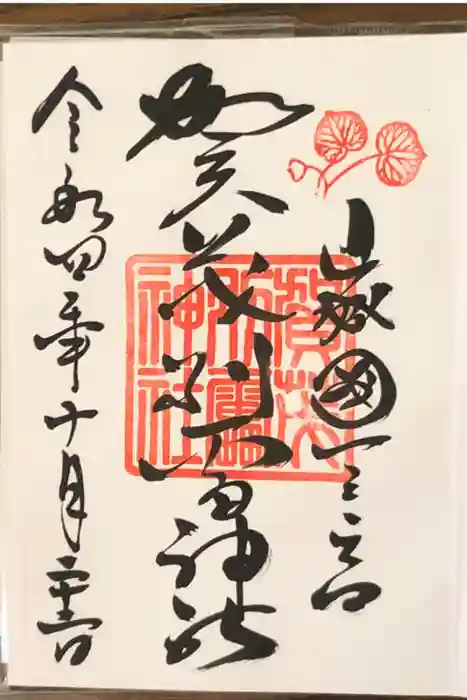 山城國一之宮
賀茂別雷神社
令和四年十月
賀茂別雷神社